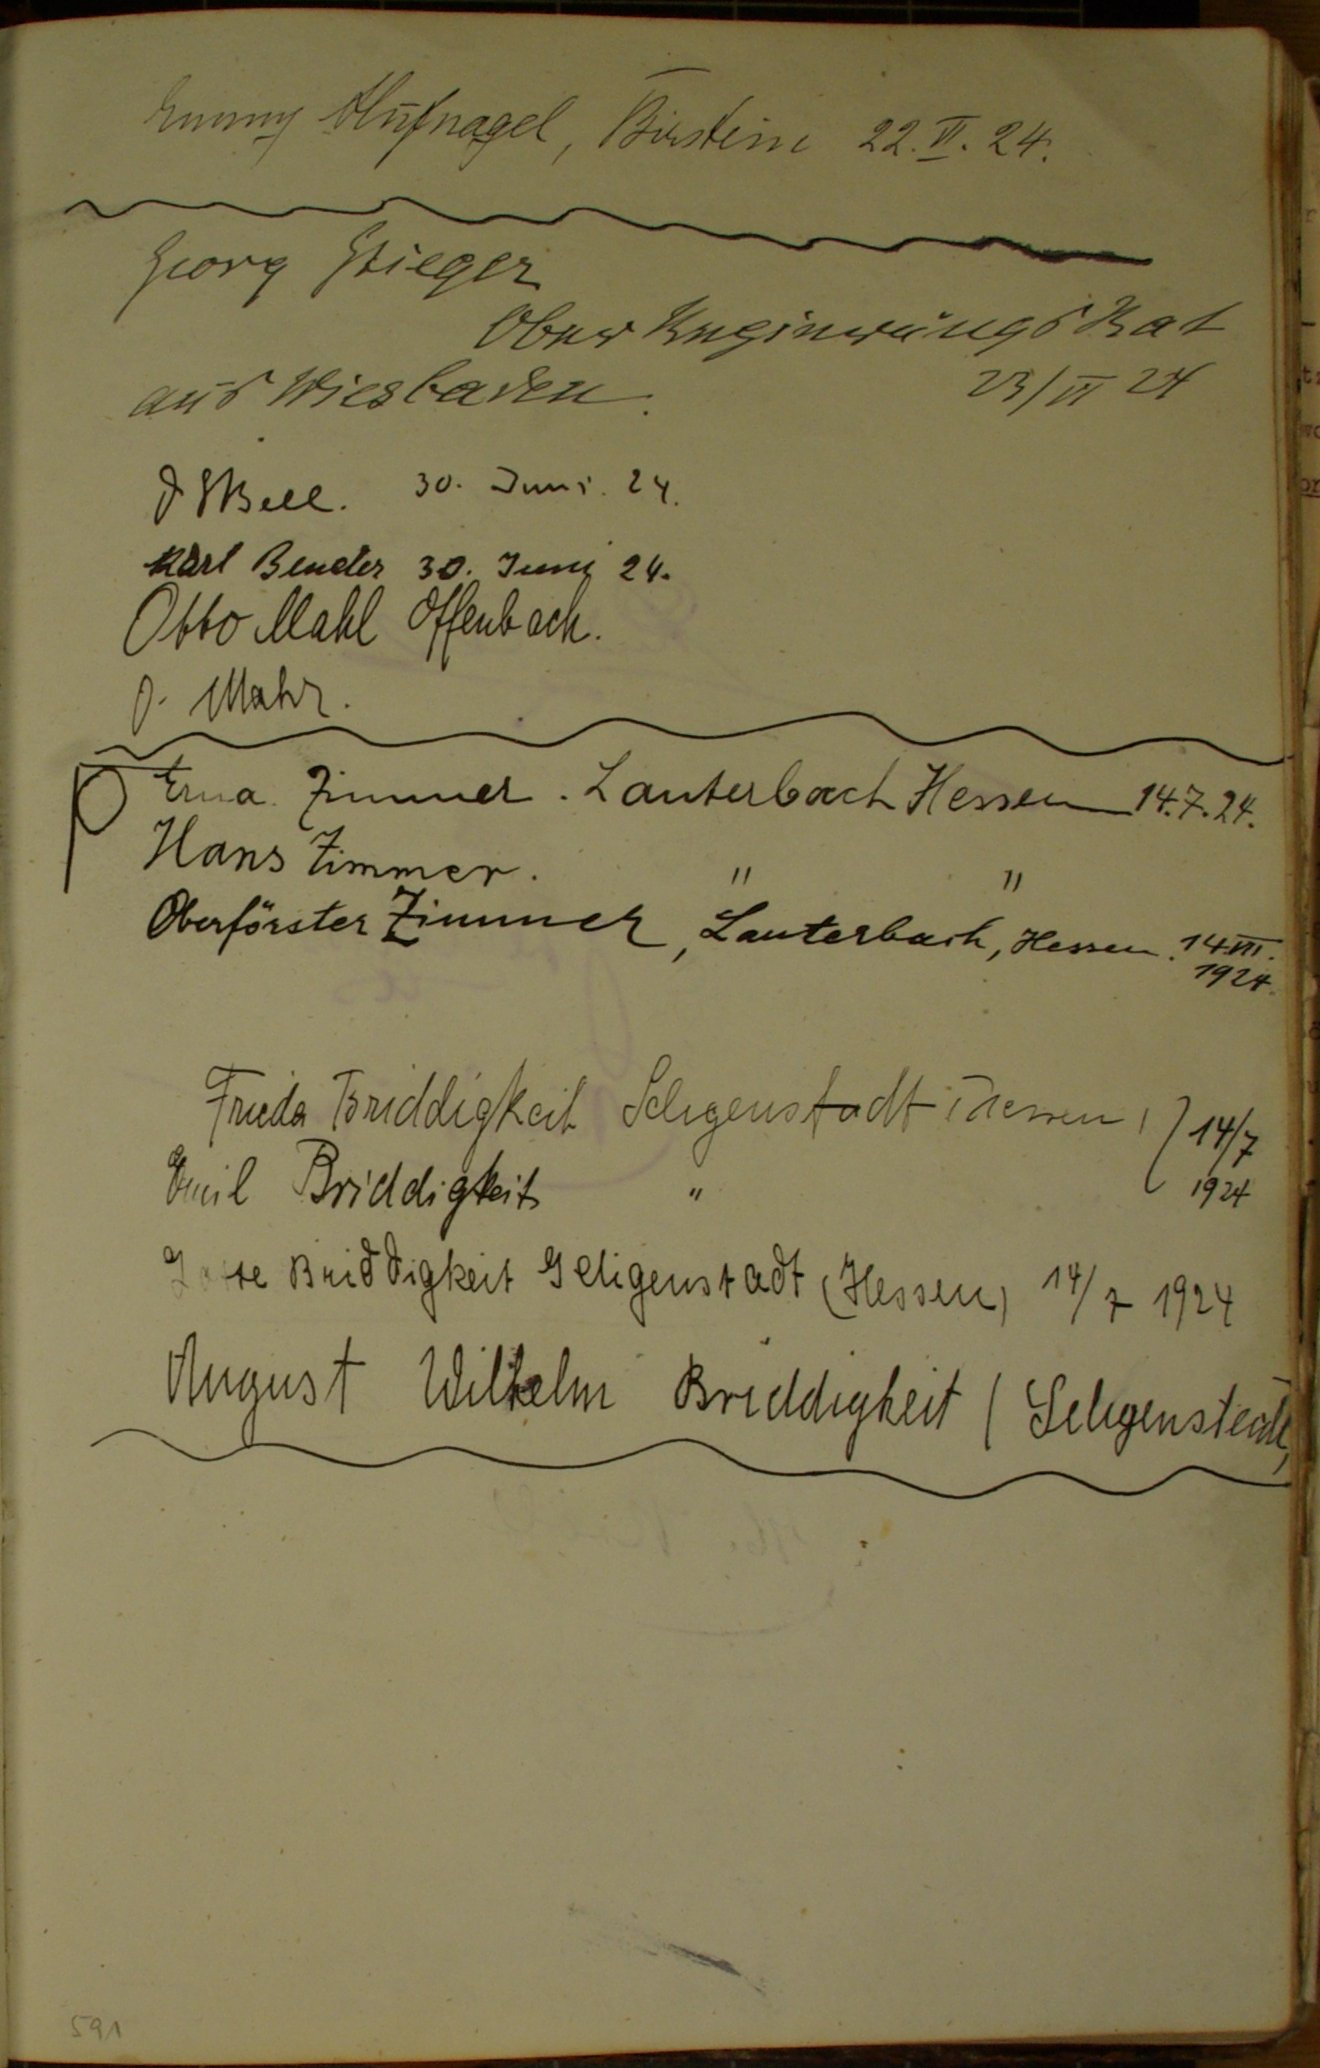 Emmy Hufnagel, Birstein 22.VI.24.
Georg Stieger
Ober Regierungs Rat
aus Wiesbaden. 23/VI 24
Bell. 30. Juni. 24.
Karl Bender 30. Juni 24.
Otto Mahl Offenbach.
J. Mahr.
Erna Zimmer. Lauterbach Hessen 14.7.24.
Hans Zimmer. " "
Oberförster Zimmer, Lauterbach, Hessen. 14.VII.
1924.
Frieda Briddigkeit Seligenstadt (Hessen) 14/7
Emil Briddigkeit " 1924
Briddigkeit Seligenstadt (Hessen) 14/7 1924
August Wilhelm Briddigkeit (Seligenstadt)
591